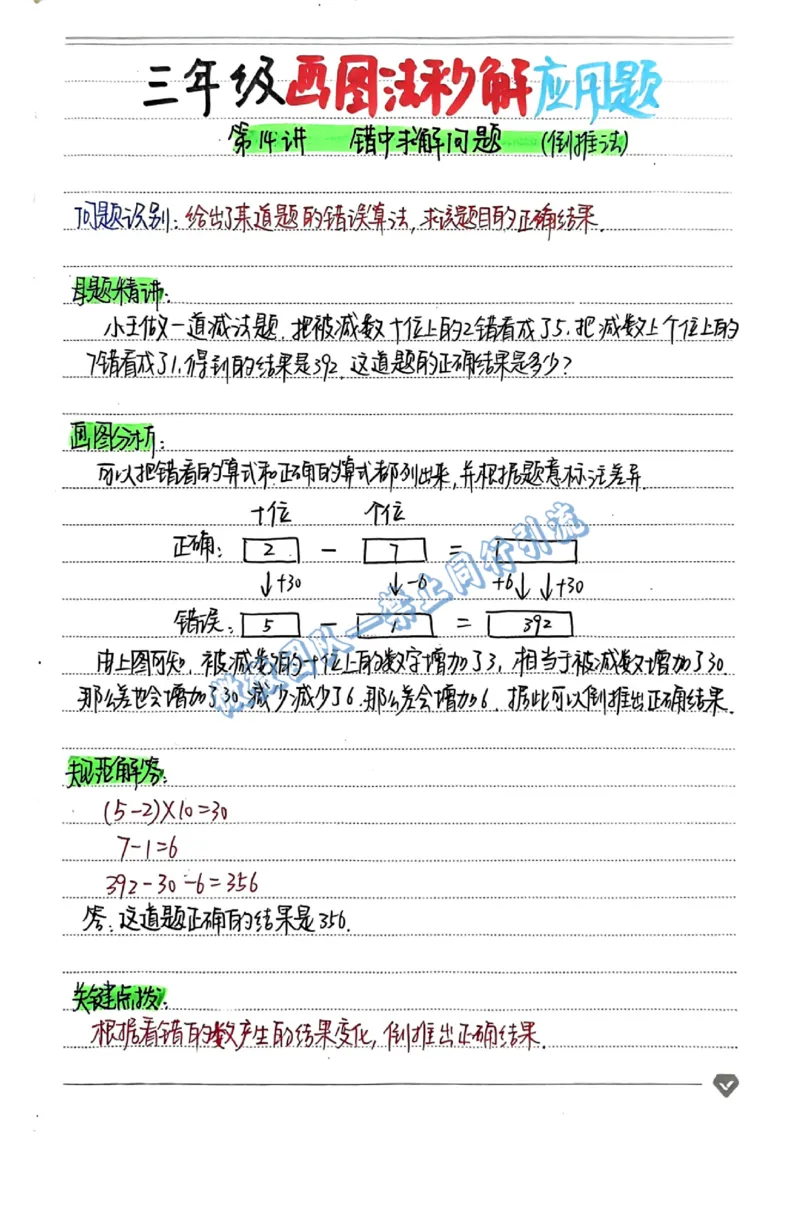 三年级画图法秒解应用题
第14讲 错中求解问题 (倒推法)
问题识别:给出了某道题的错误算法,求该题目的正确结果.
母题精讲:
小王做一道减法题.把被减数十位上的2错看成了5.把减数上个位上的
7错看成了1.得到的结果是392.这道题的正确结果是多少?
画图分析:
可以把错看的算式和正确的算式都列出来,并根据题意标注差异.
十位 个位
正确: 2 - 7 =
↓+30 ↓-6 +6↓ ↓+30
错误: 5 - 1 = 392
由上图可知.被减数的十位上的数字增加了3,相当于被减数增加了30.
那么差也会增加了30.减少减少了6.那么差会增加6.据此可以倒推出正确结果.
规范解答:
(5-2)×10=30
7-1=6
392-30-6=356
答:这道题正确的结果是356.
关键点拨:
根据看错的数产生的结果变化,倒推出正确结果.
团队—禁止同行引流